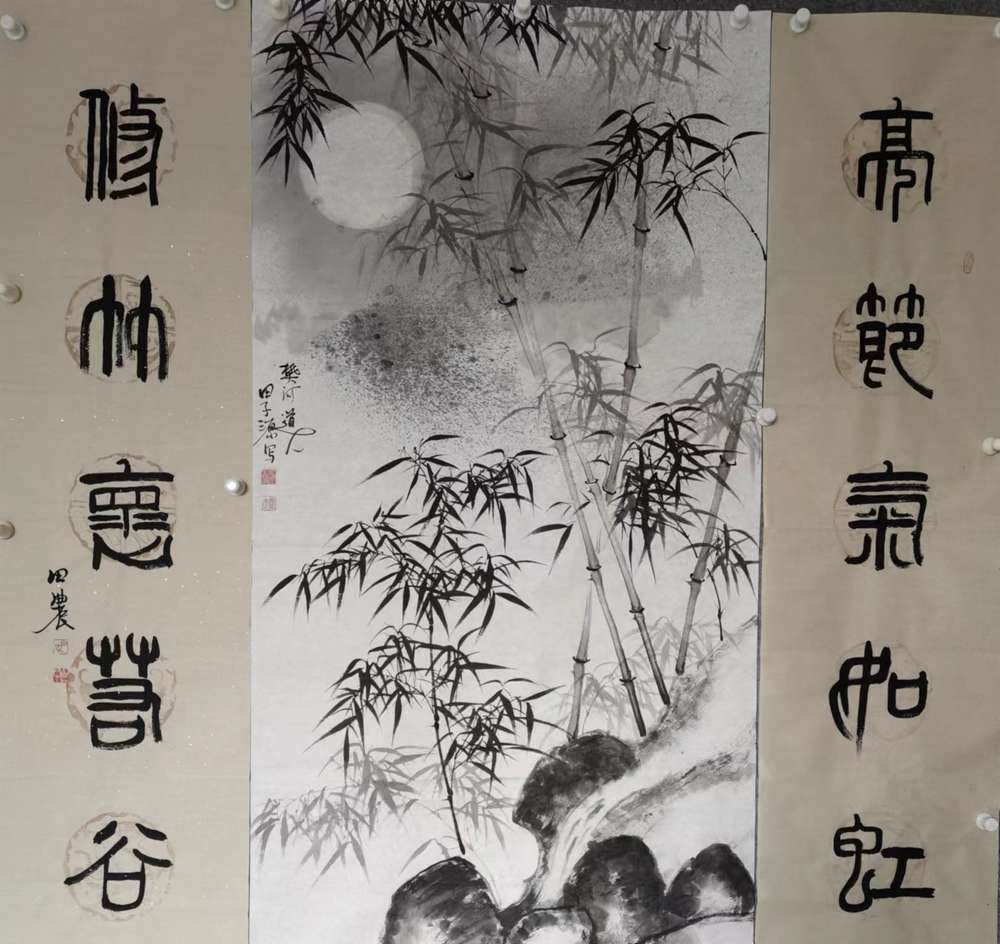 亮節氣如虹
修竹褱若谷
田農
樊河道人
田子 写